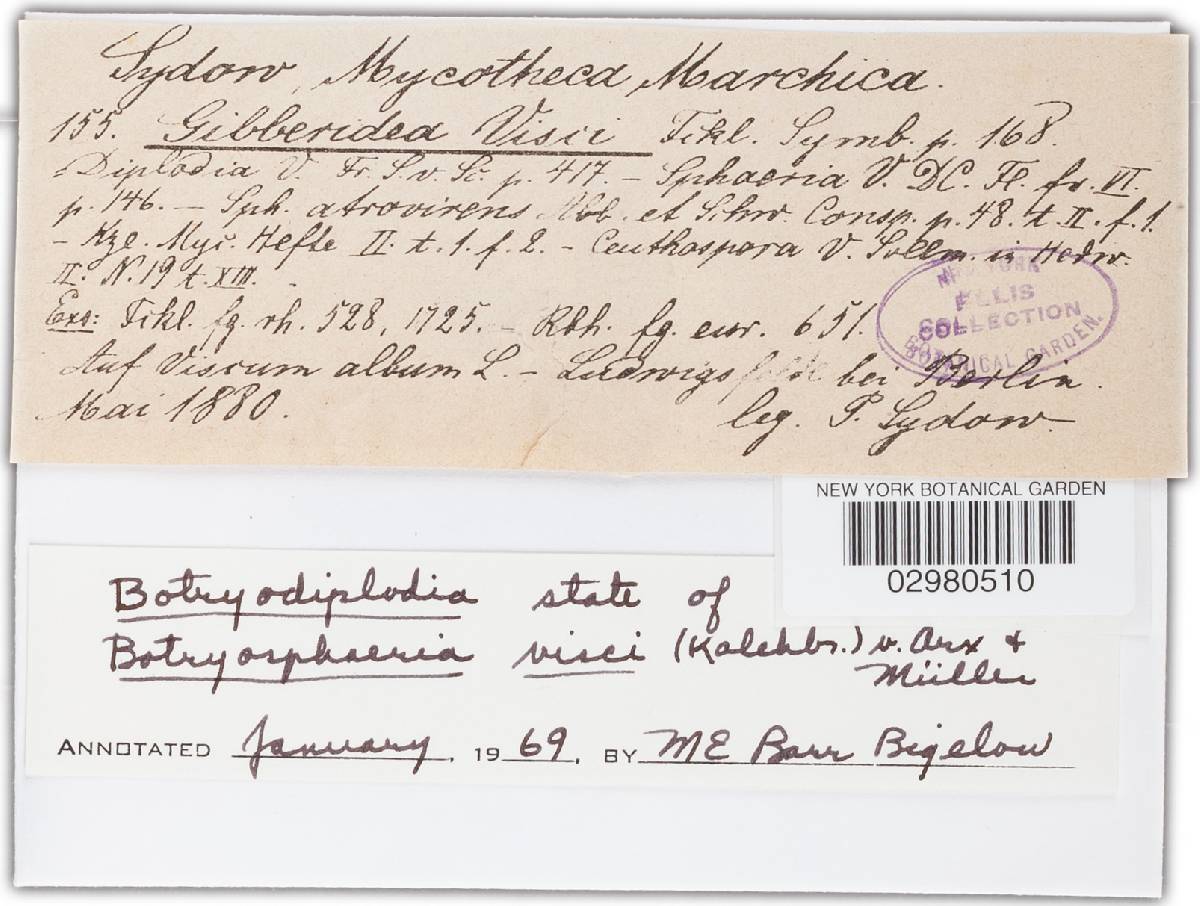 Sydow, Mycotheca Marchica.
155. Gibberidea Visci Fckl. Symb. p. 168.
Diplodia V. Fr. S. v. Sc. p. 417. – Sphaeria V. DC. Fl. fr. VI.
p. 146. – Sph. atrovirens Alb. et Schw. Consp. p. 48. t. II. f. 1.
– Kze. Myc. Hefte II. t. 1. f. 2. – Ceuthospora V. Sollm. in Hedw.
II. N. 19 t. XIII.
Exs: Fckl. fg. rh. 528, 1725. – Rbh. fg. eur. 651.
Auf Viscum album L. – Ludwigsfelde bei Berlin.
Mai 1880. leg. P. Sydow.
NEW YORK
ELLIS
COLLECTION
BOTANICAL GARDEN.
NEW YORK BOTANICAL GARDEN
02980510
Botryodiplodia state of
Botryosphaeria visci (Kalchbr.) v. Arx &
Müller
ANNOTATED January, 1969, BY ME Barr Bigelow